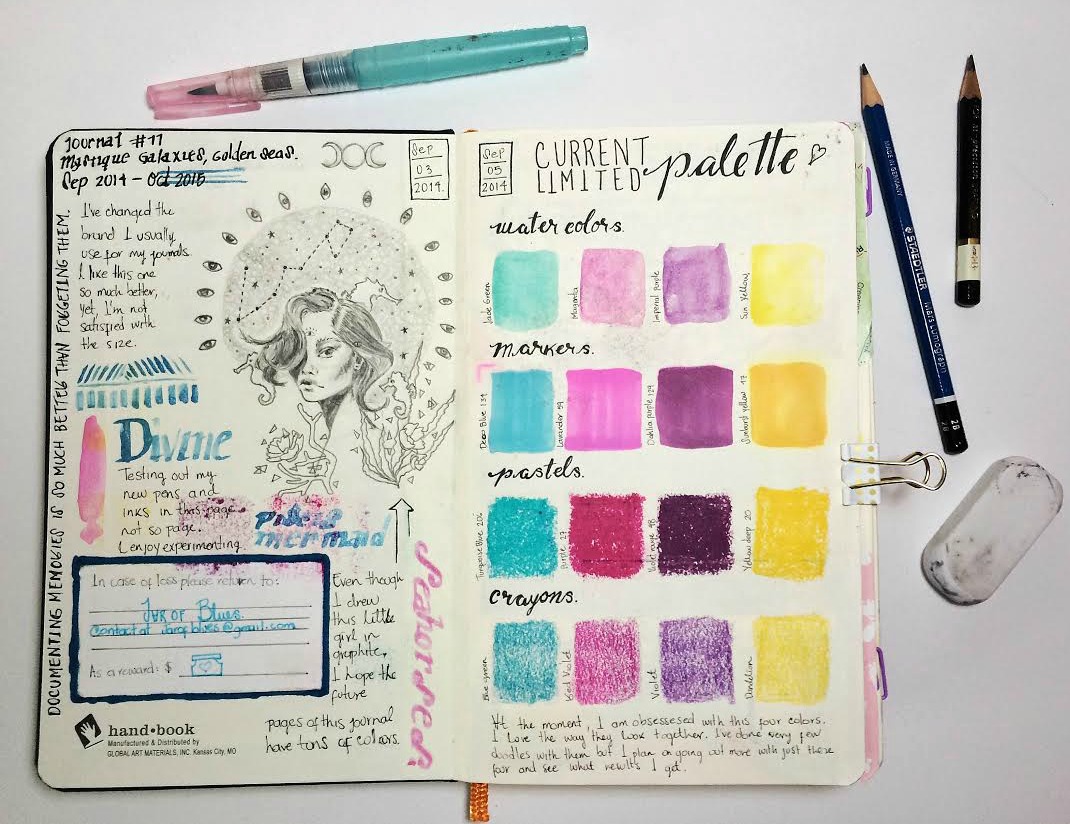 Journal #11
Mystique Galaxies, Golden Seas.
Sep 2014 – Oct 2015
Sep
03
2014.
DOCUMENTING MEMORIES IS SO MUCH BETTER THAN FORGETING THEM.
I've changed the
brand I usually
use for my journals.
I like this one
so much better,
yet, I'm not
satisfied with
the size.
Divine
Testing out my
new pens and
inks in this page.
not so page.
I enjoy experimenting
mermaid
In case of loss please return to:
JAR OF Blues.
Contact at
As a reward: $
Even though
I drew
this little
girl in
graphite,
I hope the
future
pages of this journal
have tons of colors.
Seahorses
hand•book
Manufactured & Distributed by
GLOBAL ART MATERIALS, INC. Kansas City, MO
Sep
05
2014
CURRENT
LIMITED palette
water colors.
Jade Green
Magenta
Imperial Purple
Sun Yellow
markers.
Deco Blue 134
Lavender 59
Dahlia purple 129
Sunburst Yellow 17
pastels.
Turquoise Blue 206
Purple 27
Violet 48
Yellow deep 20
crayons.
Blue green
Red Violet
Violet
Dandelion
At the moment, I am obssesed with this four colors.
I love the way they look together. I've done very few
doodles with them but I plan on going out more with just these
four and see what results I get.
MADE IN GERMANY
STAEDTLER Mars Lumograph
2B